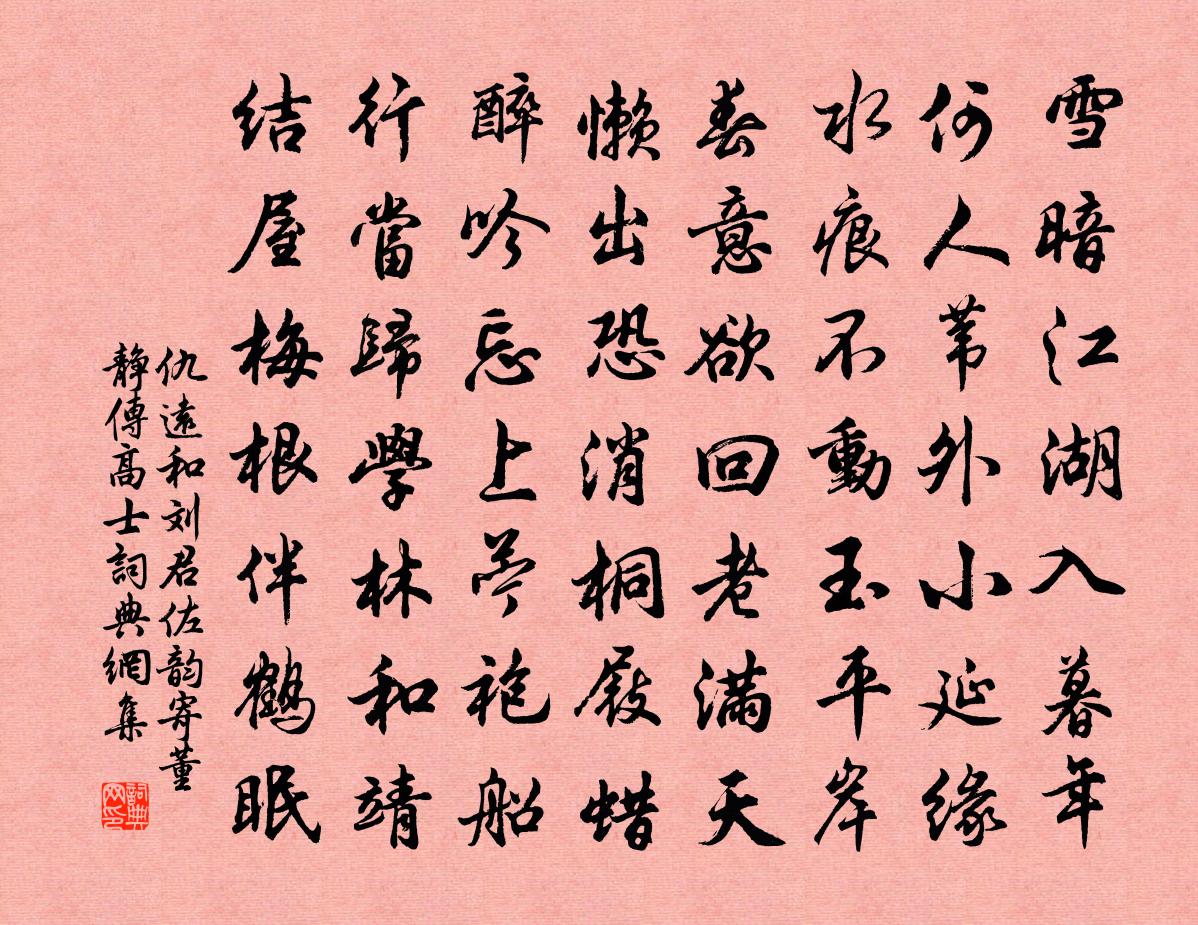 雪暗江湖入暮年
何人苇外小延缘
水痕不動玉平岸
春意欲回老满天
懒出恐消桐屐蜡
醉吟忘上苎袍船
行當歸學林和靖
结屋梅根伴鶴眠
仇遠和刘君佐韵寄董
静傳高士詞典網集
詞典网印